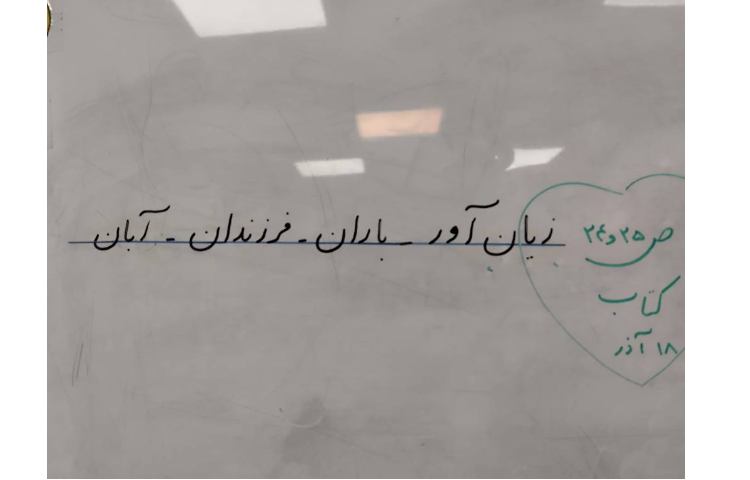 زیان آور - باران - فرزندان - آبان
ص ۲۵ و ۲۴
کتاب
۱۸ آذر